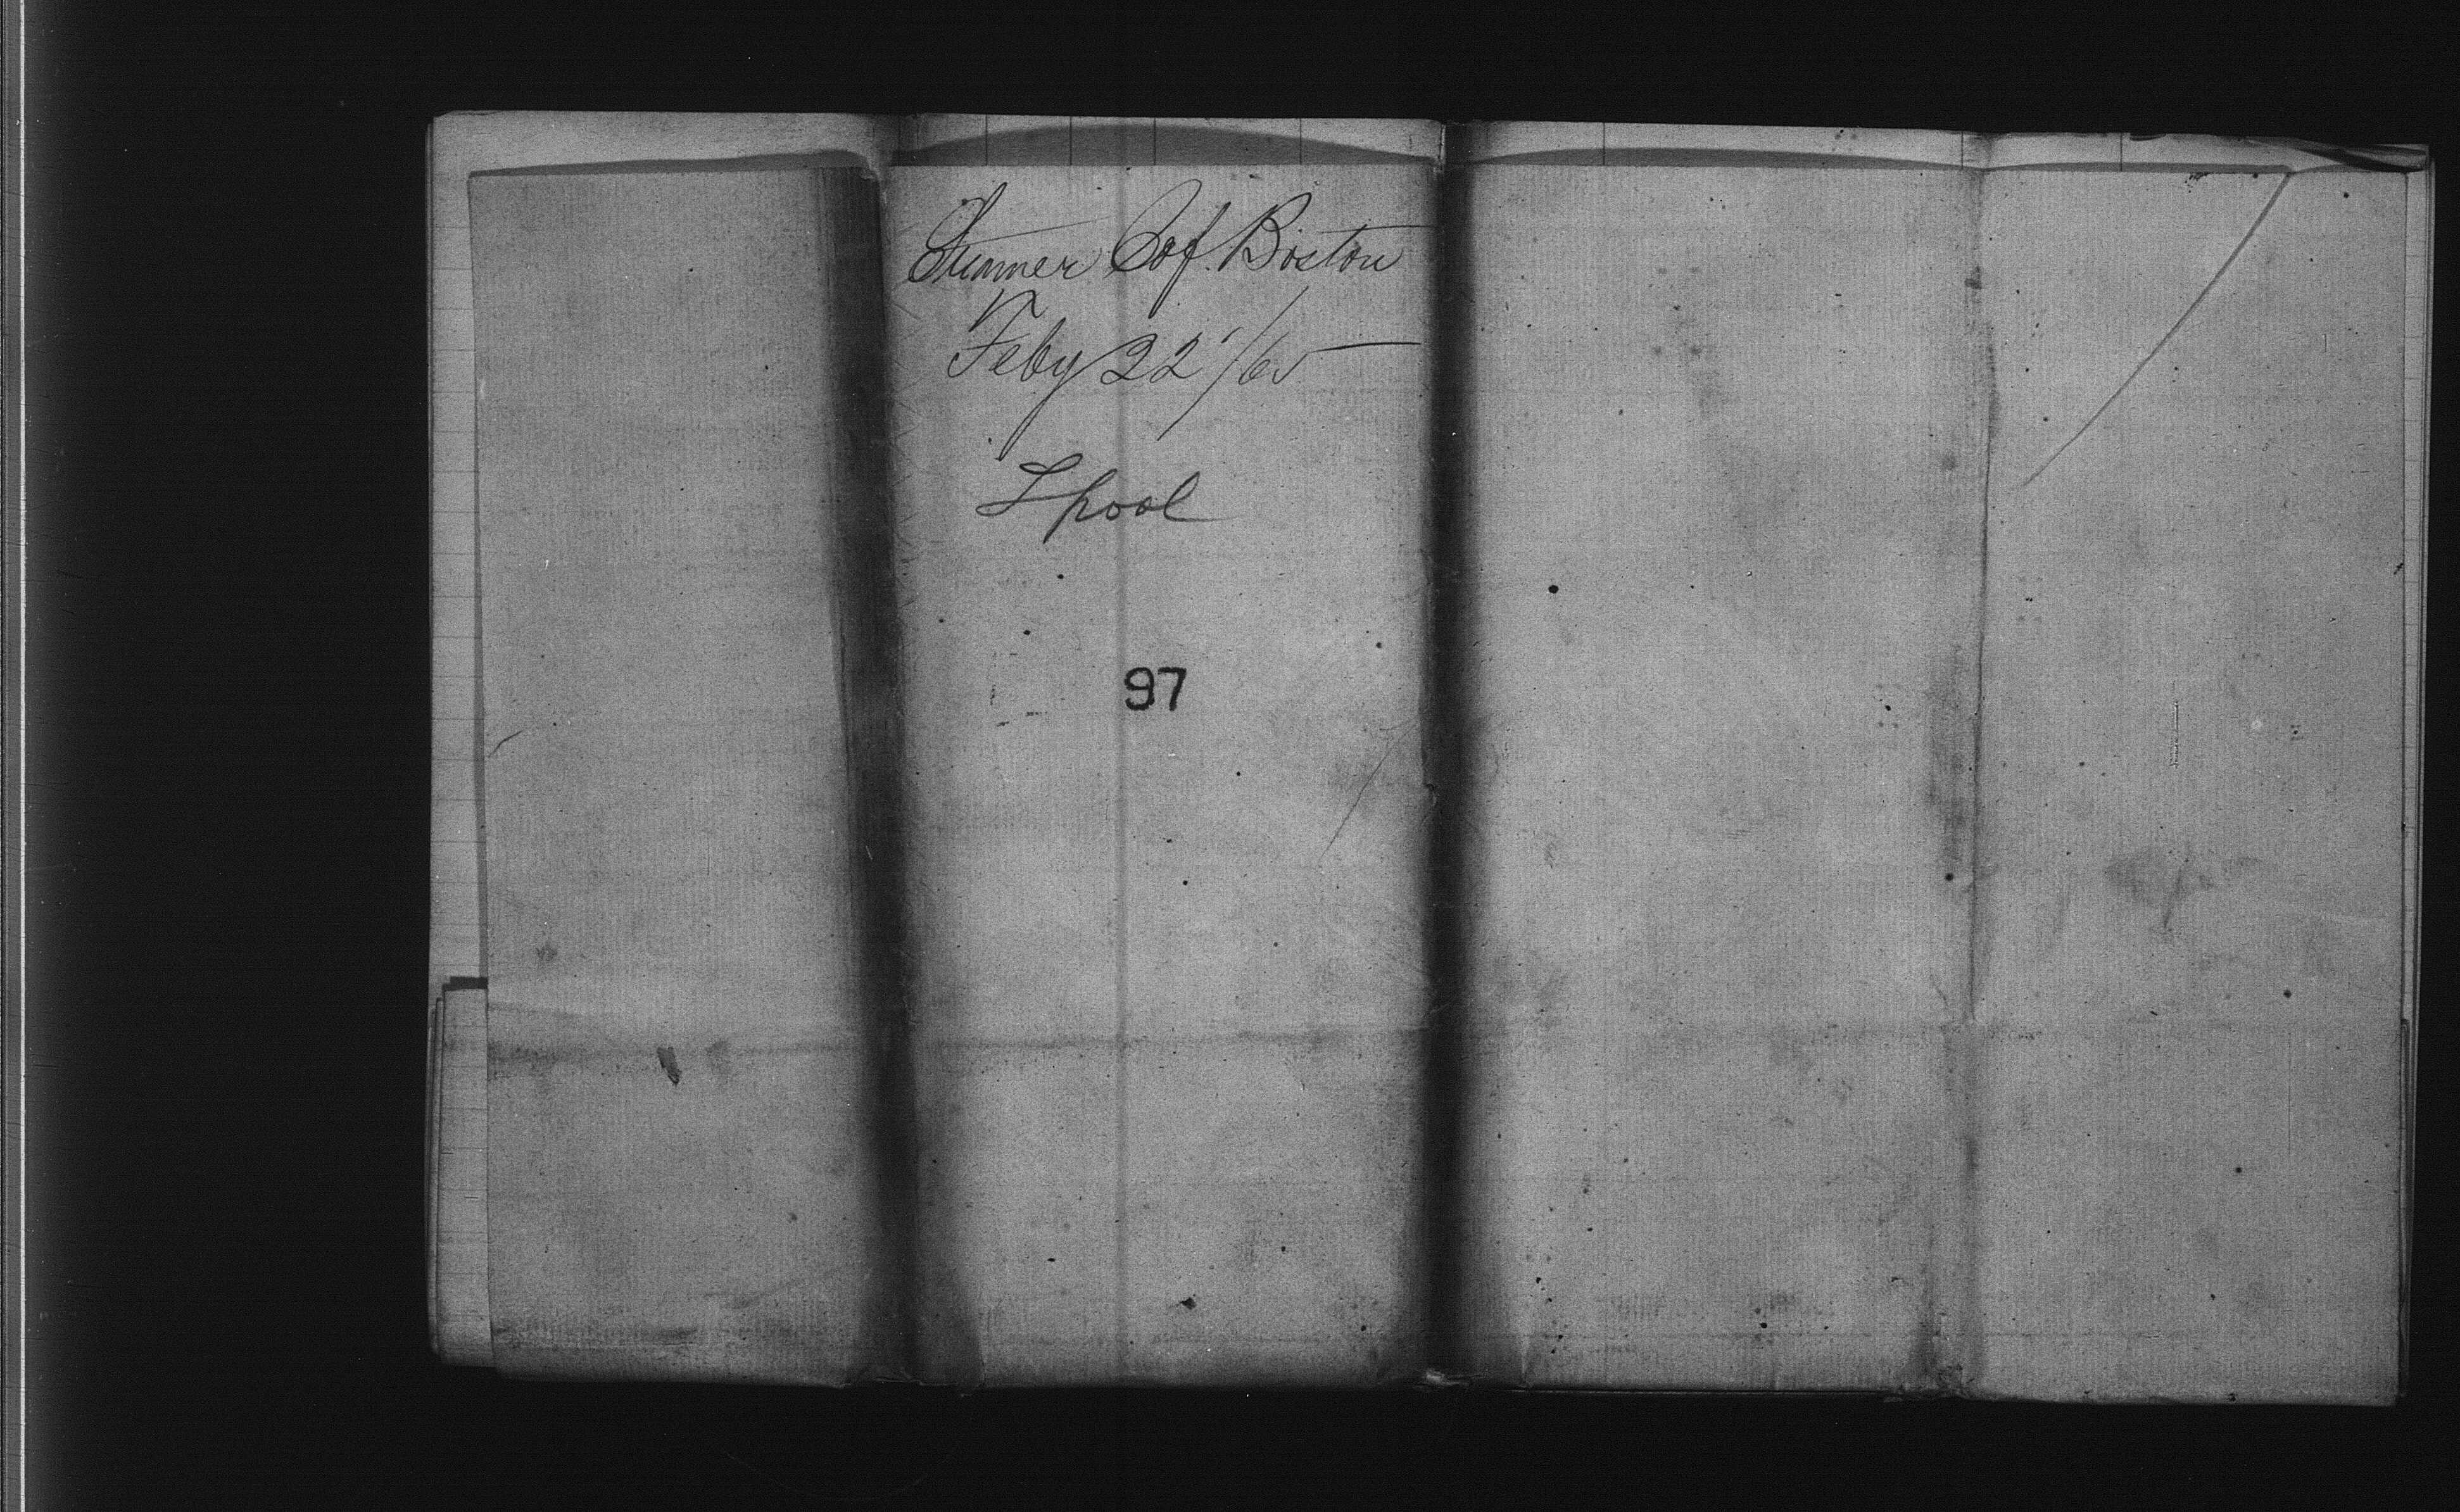 Steamer C of Boston
Feby 22 /65
Lpool
97